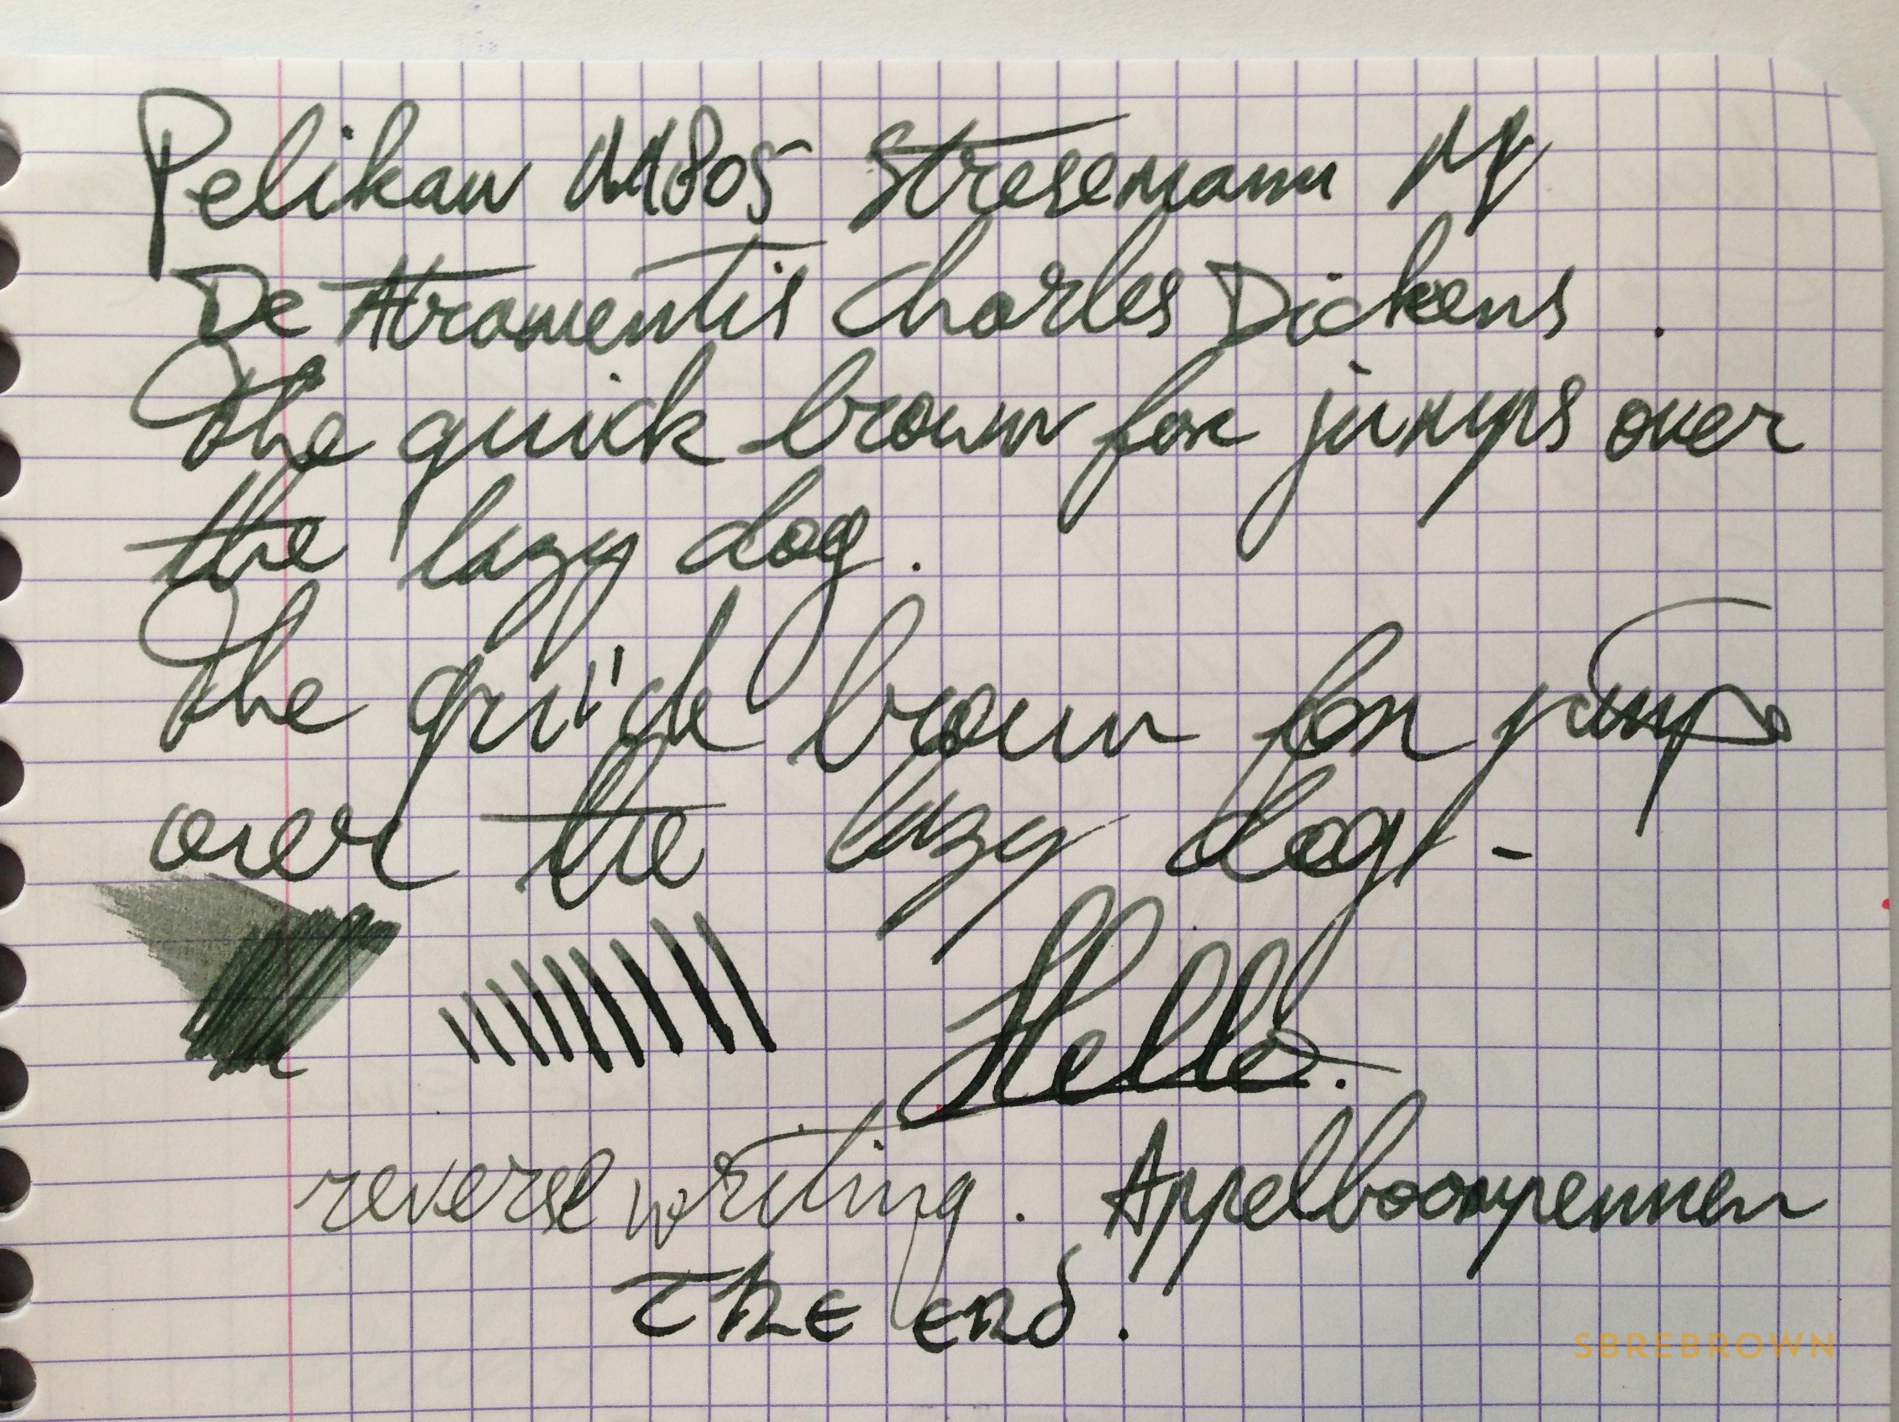 Pelikan M805 Stresemann M
De Atramentis Charles Dickens.
The quick brown fox jumps over
the lazy dog.
The quick brown fox jumps
over the lazy dog -
Hello.
reverse writing. Appelboompennen
The end.
SBREBROWN